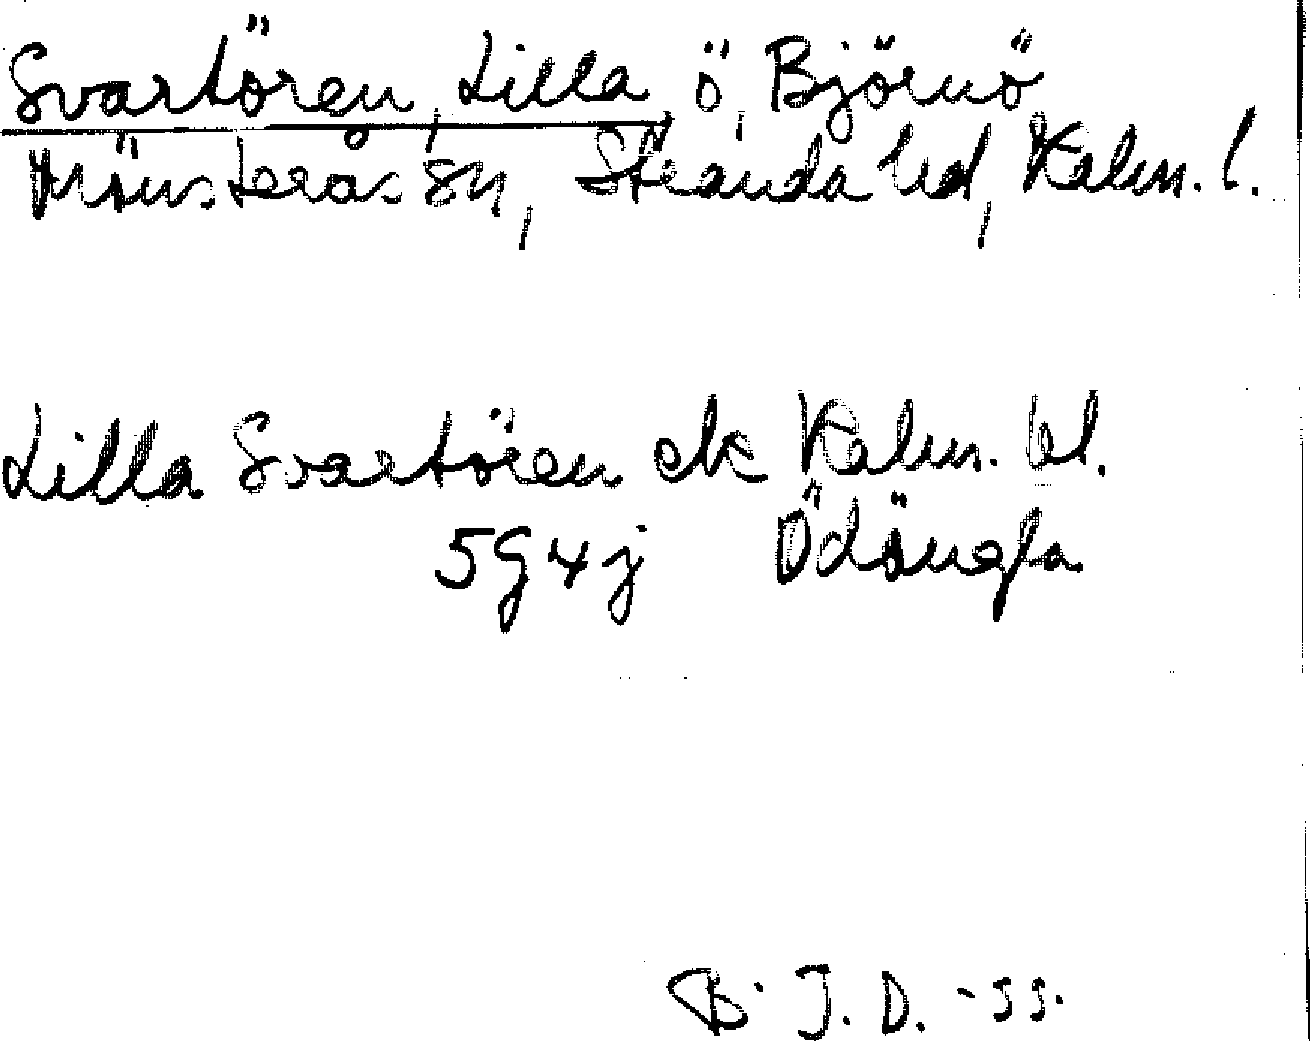 Svartören, Lilla, ö, Björnö
Mönsterås sn, Stranda hd, Kalm. l.
Lilla Svartören ek Kalm. bl.
5G4j Ödängla
B. J. D. -55.